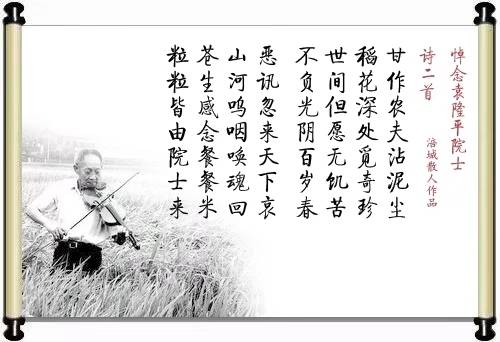 悼念袁隆平院士
诗二首
涪城散人作品
甘作农夫沾泥尘
稻花深处觅奇珍
世间但愿无饥苦
不负光阴百岁春
恶讯忽来天下哀
山河呜咽唤魂回
苍生感念餐餐米
粒粒皆由院士来